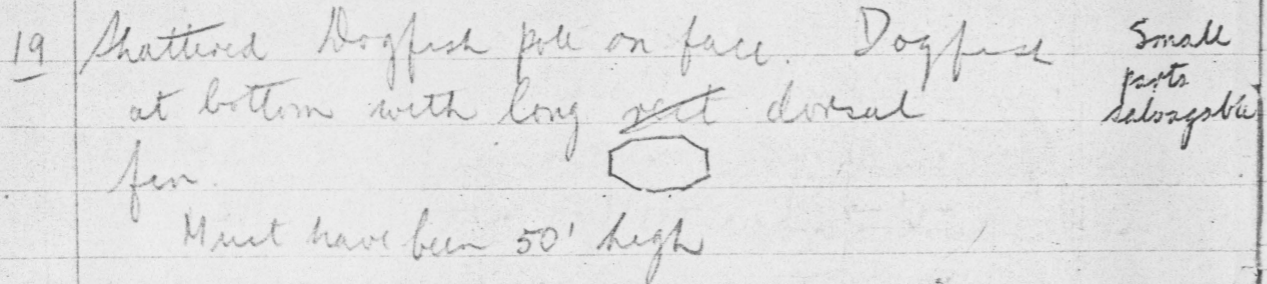 19 Shattered Dogfish pole on face. Dogfish
at bottom with long vert dorsal
fin.
Must have been 50' high
Small
parts
salvagable